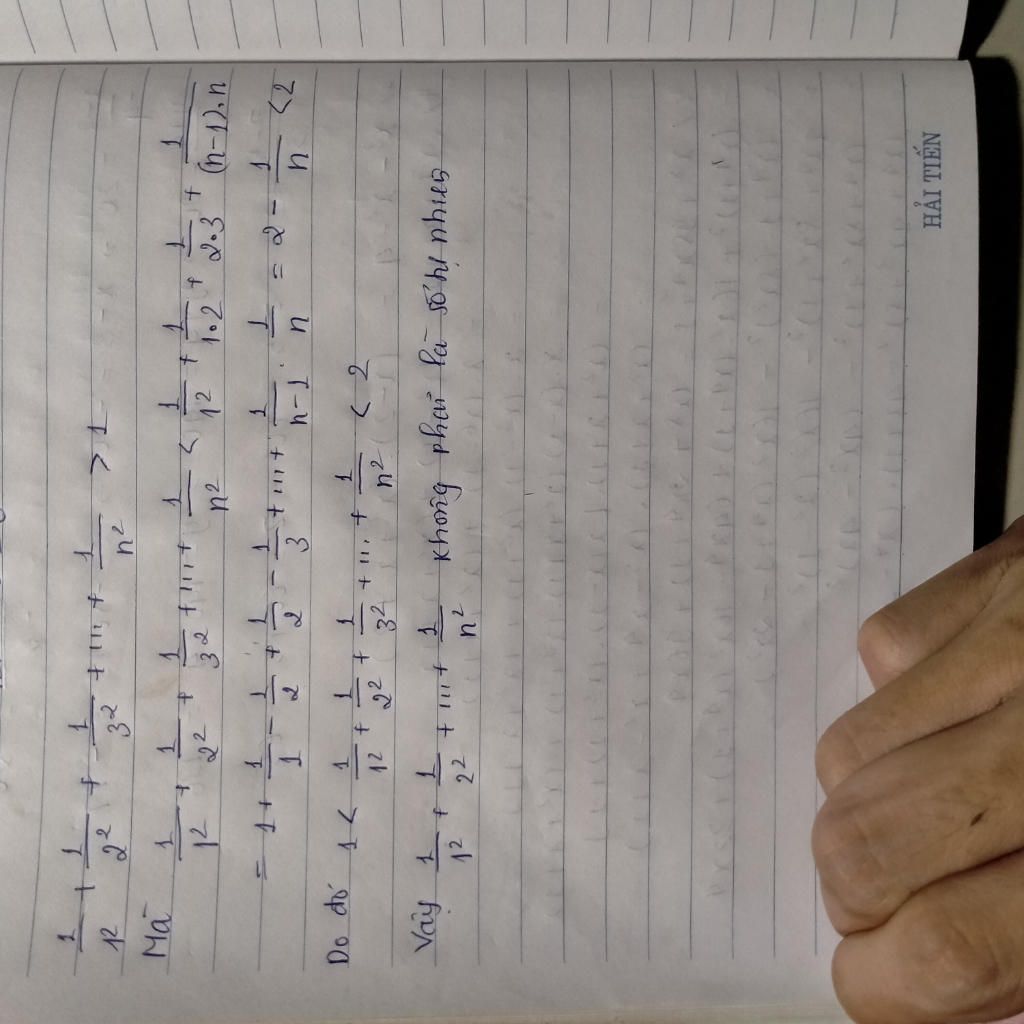 1/1² + 1/2² + 1/3² + ... + 1/n² > 1
Mà 1/1² + 1/2² + 1/3² + ... + 1/n² < 1/1² + 1/1.2 + 1/2.3 + 1/(n-1).n
= 1 + 1/1 - 1/2 + 1/2 - 1/3 + ... + 1/n-1 . 1/n = 2 - 1/n < 2
Do đó 1 < 1/1² + 1/2² + 1/3² + ... + 1/n² < 2
Vậy 1/1² + 1/2² + ... + 1/n² không phải là số tự nhiên
HẢI TIẾN